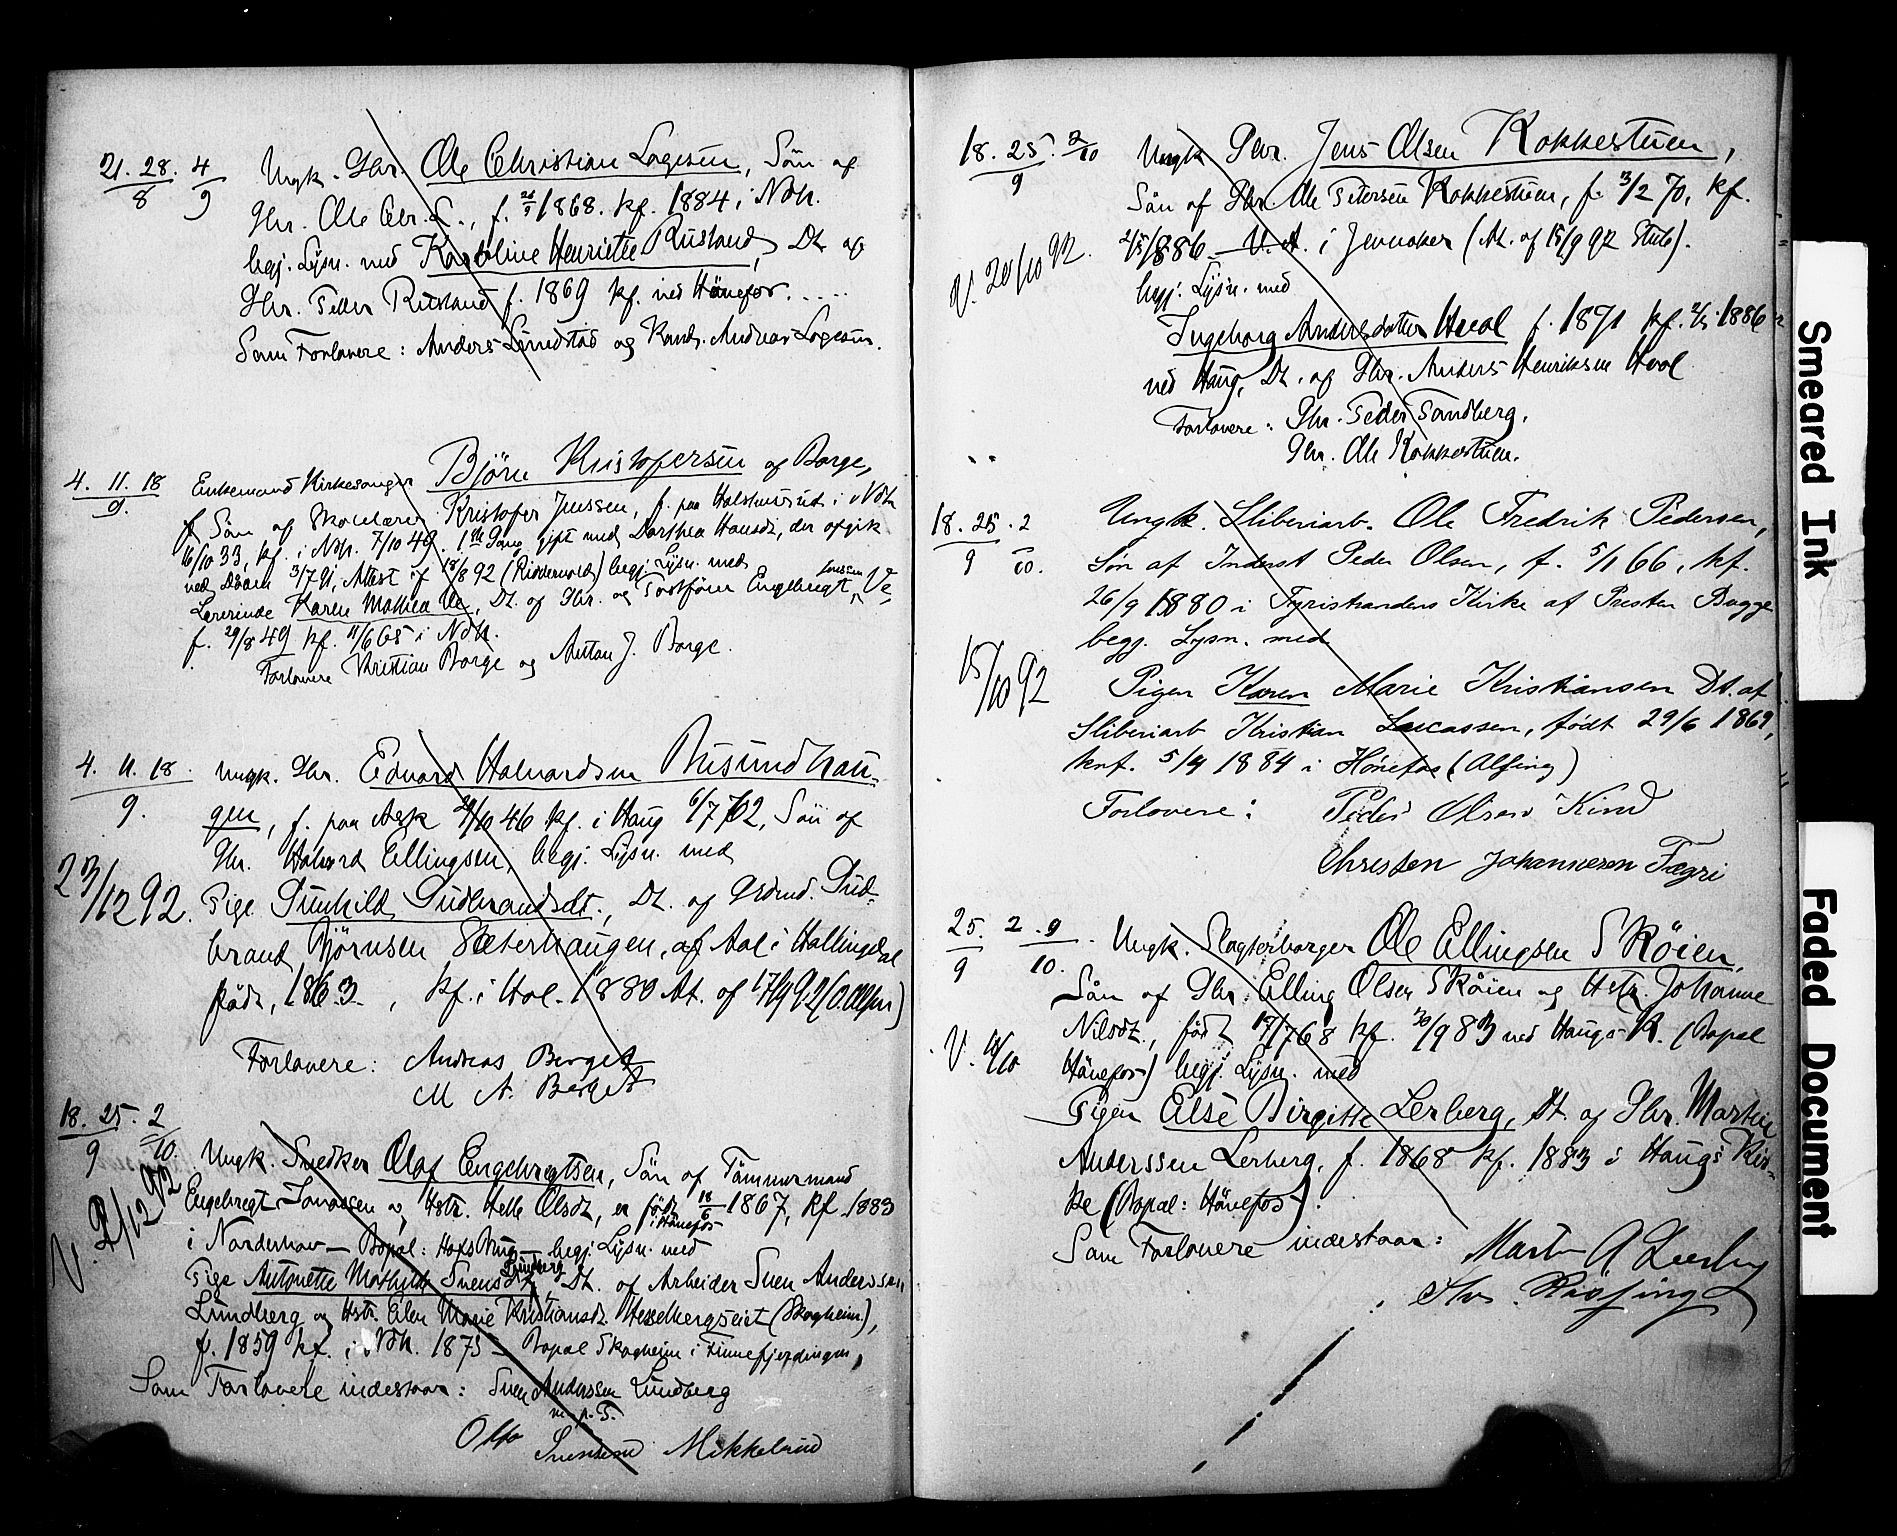 21. 28. 4
8 9
Ungk. Gbr. Ole Christian Logesen, Sön af
Gbr. Ole Chr. L., f. 1868. kf. 1884 i Ndh.
begj. Lysn. med Karoline Henriette Rusland, Dt. af
Gbr. Peder Rusland f. 1869 kf. ved Hönefos.....
Som Forlovere: Anders Lundstad og Kand. Andreas Logesen.
4. 11. 18
9.
Enkemand Kirkesanger Björn Kristofersen af Borge,
f Sön af Skolelærer Kristofer Jenssen, f. paa i Ndh
16/10 33, kf. i Ndh. 7/10 49. 1ste Gang gift med Dorthea Hansdt, der afgik
ved Döden 3/7 91, Attest af 18/8 92 (Ridderwold) begj. Lysn. med
Lærerinde Karen Mathea Ve, Dt. af Gbr. og Postfører Engebregt Jonssen Ve,
f. 29/8 49 kf. 11/6 65 i Ndh.
Forlovere Kristian Borge og Anton J. Borge.
4. 11. 18
9.
23/12 92.
Ungk. Gbr. Edvard Halvordsen Busundhau-
gen, f. paa Ask 29/10 46 kf. i Haug 6/7 62, Sön af
Gbr. Halvord Ellingsen, begj. Lysn. med
Pige Gunhild Gudbrandsdt., Dt. af Grdmd. Gud-
brand Björnsen Sæterhaugen, af Aal i Hallingdal
födt, 1863. , kf. i Hol. 1880 At. af 17/9 92 (O. Olsen)
Forlovere: Andreas Berget
M A. Berget
18. 25. 2
9 10.
V. 2/12 92
Ungk. Snedker Olaf Engebregtsen, Sön af Tömmermand
Engebregt Jonassen og Hstr. Helle Olsdt, er födt 18/6 1867, kf. 1883
i Hönefos
i Norderhov — Bopal: Hofsbrug — begj. Lysn. med
Pige Antonette Mathilde Svensdt. Lundberg, Dt. af Arbeider Sven Anderssen
Lundberg og Hstr. Elen Marie Kristiansdt. Hesselbergseiet (Skogheim),
f. 1859 kf. i Ndh. 1875 — Bopal Skogheim i Finnefjerdingen,
Som Forlovere indestaar: Sven Anderssen Lundberg
m. p. P.
Olfo Svensen Mikkelrud
18. 25. 2/10
9
V. 20/10 92.
Ungk Gbr. Jens Olsen Kokkestuen,
Sön af Gbr. Ole Petersen Kokkestuen, f. 3/2 70, kf.
2/5 1886 — V. A. i Jevnaker (At. af 15/9 92 Stub).
begj. Lysn. med
Ingeborg Andersdatter Hvol f. 1871 kf. 2/5 1886
ved Haug, Dt. af Gbr. Anders Henriksen Hvol
Forlovere: Gbr. Peder Sandberg.
Gbr. Ole Kokkestuen.
18. 25. 2
9 10.
15/10 92
Ungk. Sliberiarb. Ole Fredrik Pedersen,
Søn af Inderst Peder Olsen, f. 5/1 66, kf.
26/9 1880 i Tyristrandens Kirke af Presten Bugge
begj. Lysn. med
Pigen Karen Marie Kristiansen Dt. af
Sliberiarb Kristian Lucassen, født 29/6 1869,
knf. 5/4 1884 i Hønefos (Alfing)
Forlovere: Peder Olsen Kind
Christen Johannesen Fægri
25. 2. 9
9 10.
V. 14/10
Ungk. Slagterborger Ole Ellingsen Sköien,
Sön af Gbr. Elling Olsen Sköien og Hstr. Johanne
Nilsdt., födt 17/7 68 kf. 30/9 83 ved Haugs K. (Bopal
Hönefos) begj. Lysn. med
Pigen Else Birgitte Lerberg, Dt. af Gbr. Martin
Anderssen Lerberg, f. 1868 kf. 1883 i Haugs Kir-
ke (Bopal: Hönefos).
Som Forlovere indestaar: Martin A Leerberg
Hvs. Röising
Smeared Ink
Faded Document